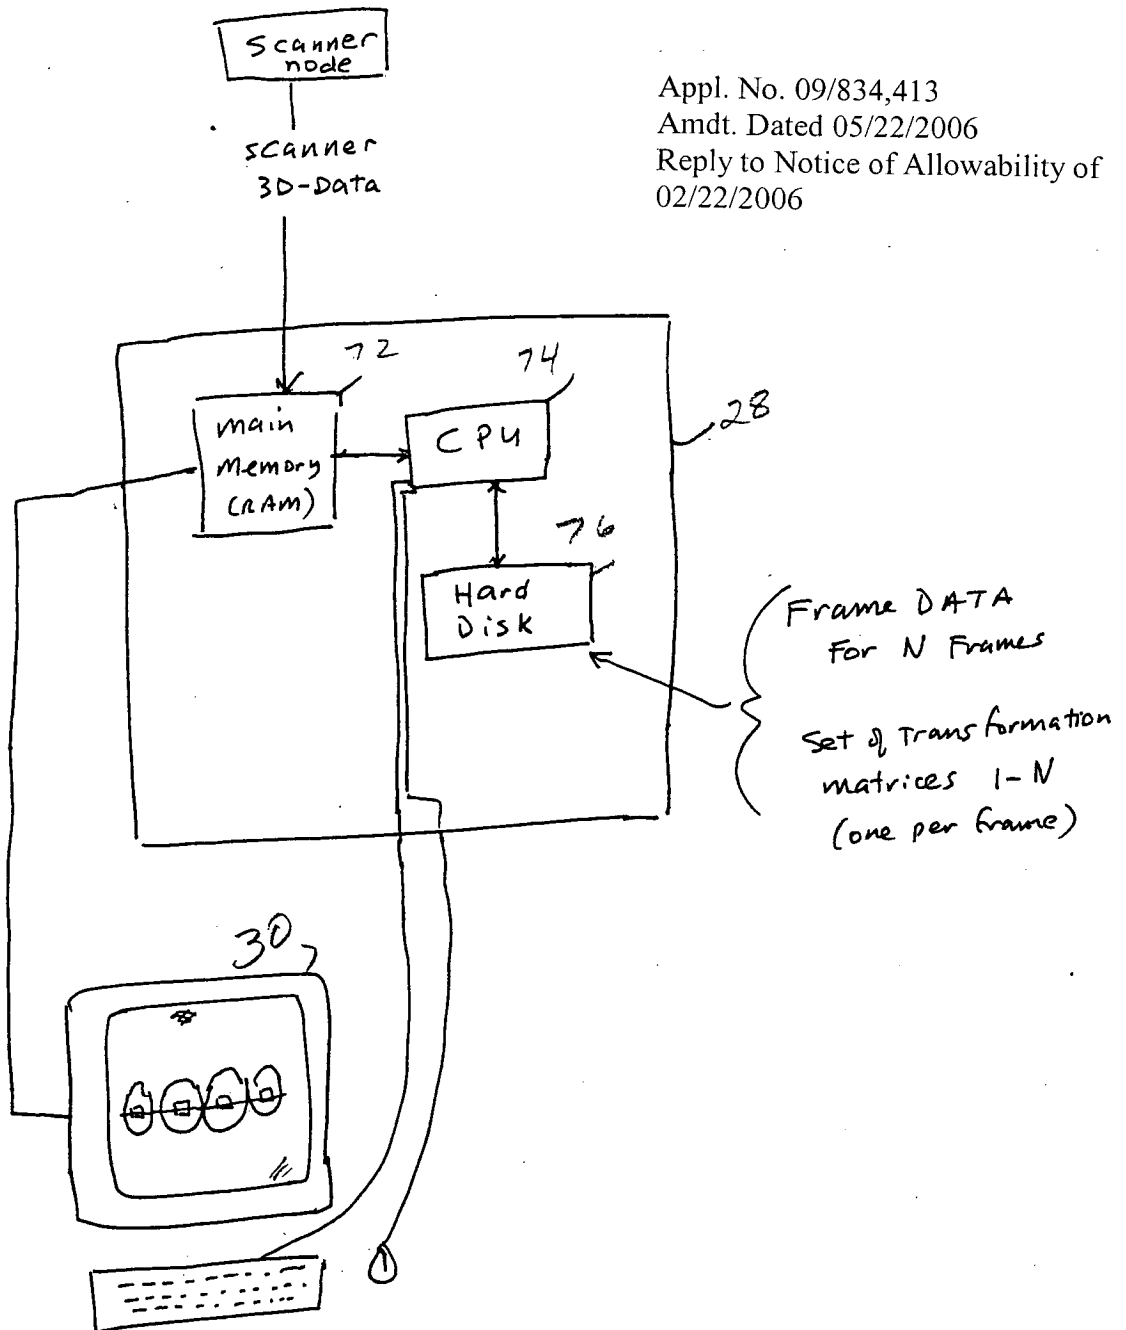 Scanner
node
Appl. No. 09/834,413
Amdt. Dated 05/22/2006
Reply to Notice of Allowability of
02/22/2006
scanner
3D-Data
72
74
28
main
Memory
(RAM)
CPU
76
Hard
Disk
Frame DATA
For N Frames
Set of Transformation
matrices 1-N
(one per frame)
30